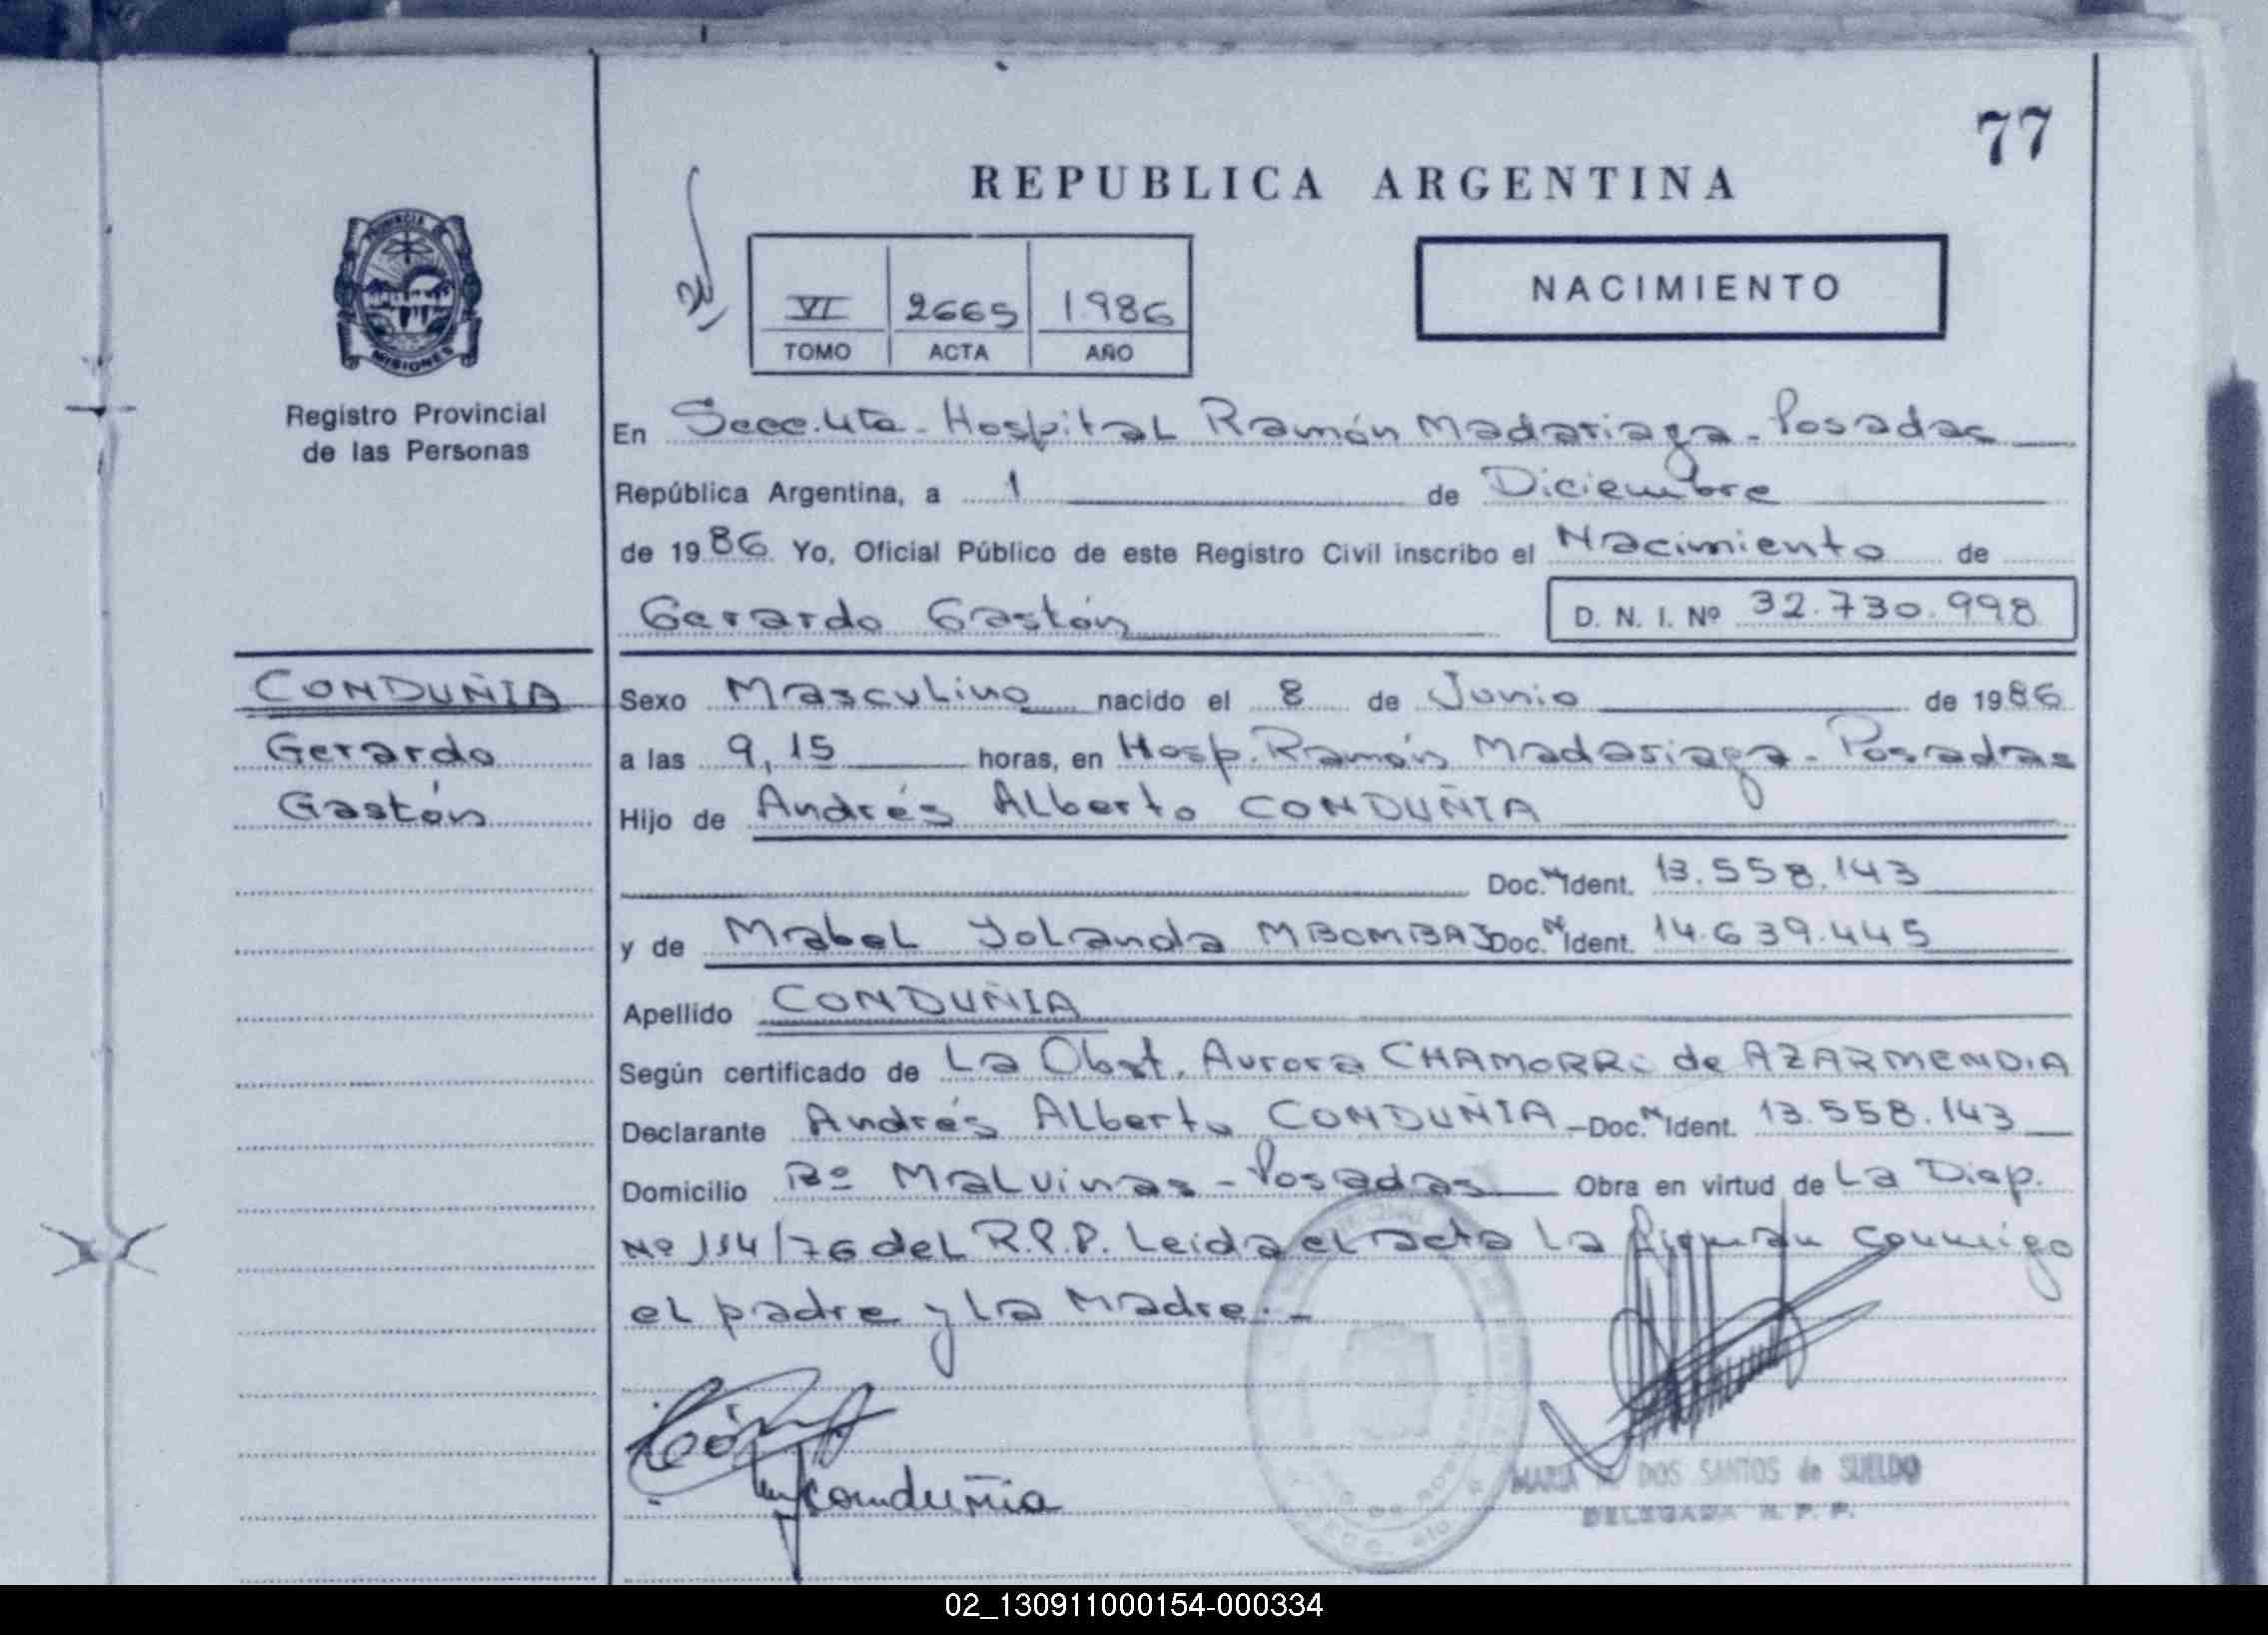 77
REPUBLICA ARGENTINA
PROVINCIA DE
MISIONES
Registro Provincial
de las Personas
VI 2665 1986
TOMO ACTA AÑO
NACIMIENTO
En Secc. 4ta - Hospital Ramón Madariaga - Posadas
República Argentina, a 1 de Diciembre
de 1986 Yo, Oficial Público de este Registro Civil inscribo el Nacimiento de
Gerardo Gastón
D. N. I. Nº 32.730.998
CONDUÑIA
Gerardo
Gastón
Sexo Masculino nacido el 8 de Junio de 1986
a las 9,15 horas, en Hosp. Ramón Madariaga - Posadas
Hijo de Andrés Alberto CONDUÑIA
Doc. Ident. 13.558.143
y de Mabel Yolanda MBOMBAJ Doc. Ident. 14.639.445
Apellido CONDUÑIA
Según certificado de La Obst. Aurora CHAMORRO de AZARMENDIA
Declarante Andrés Alberto CONDUÑIA - Doc. Ident. 13.558.143
Domicilio Bº Malvinas - Posadas Obra en virtud de La Disp.
Nº 114/76 del R.P.P. Leida el acta La firman conmigo
el padre y La Madre. -
Conduñia
MARIA DOS SANTOS de SUELDO
DELEGADA R. P. P.
02_130911000154-000334